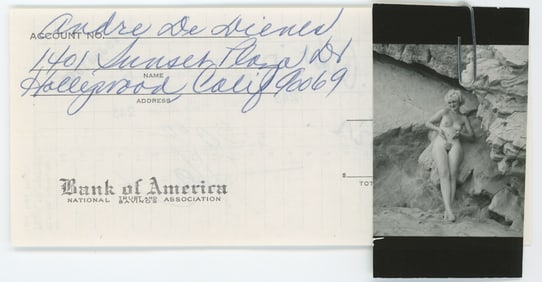 Andre De Dienes
ACCOUNT NO.
1401 Sunset Plaza Dr
NAME
Hollywood, Calif 90069
ADDRESS
Bank of America
NATIONAL TRUST AND SAVINGS ASSOCIATION
$
TOT